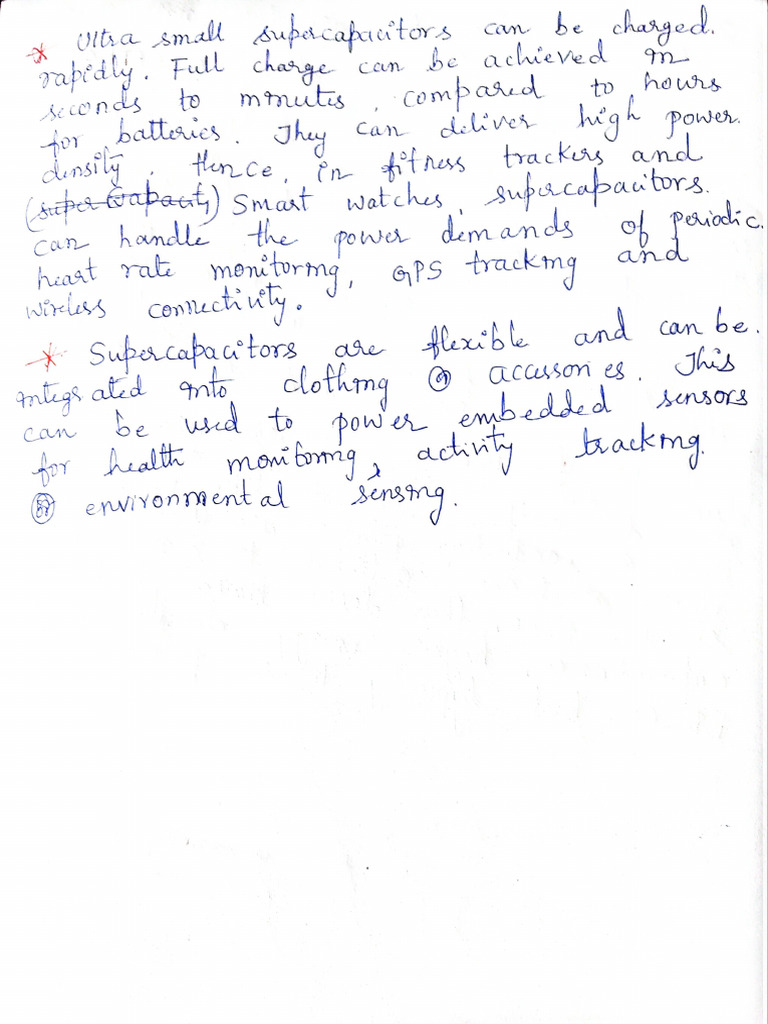 * Ultra small supercapacitors can be charged.
rapidly. Full charge can be achieved in
seconds to minutes, compared to hours
for batteries. They can deliver high power.
density. Hence, in fitness trackers and
(super Capacit,) Smart watches, supercapacitors.
can handle the power demands of periodic.
heart rate monitoring, GPS tracking and
wireless connectivity.
* Supercapacitors are flexible and can be.
integrated into clothing or accessories. This
can be used to power embedded sensors
for health monitoring, activity tracking.
or environmental sensing.